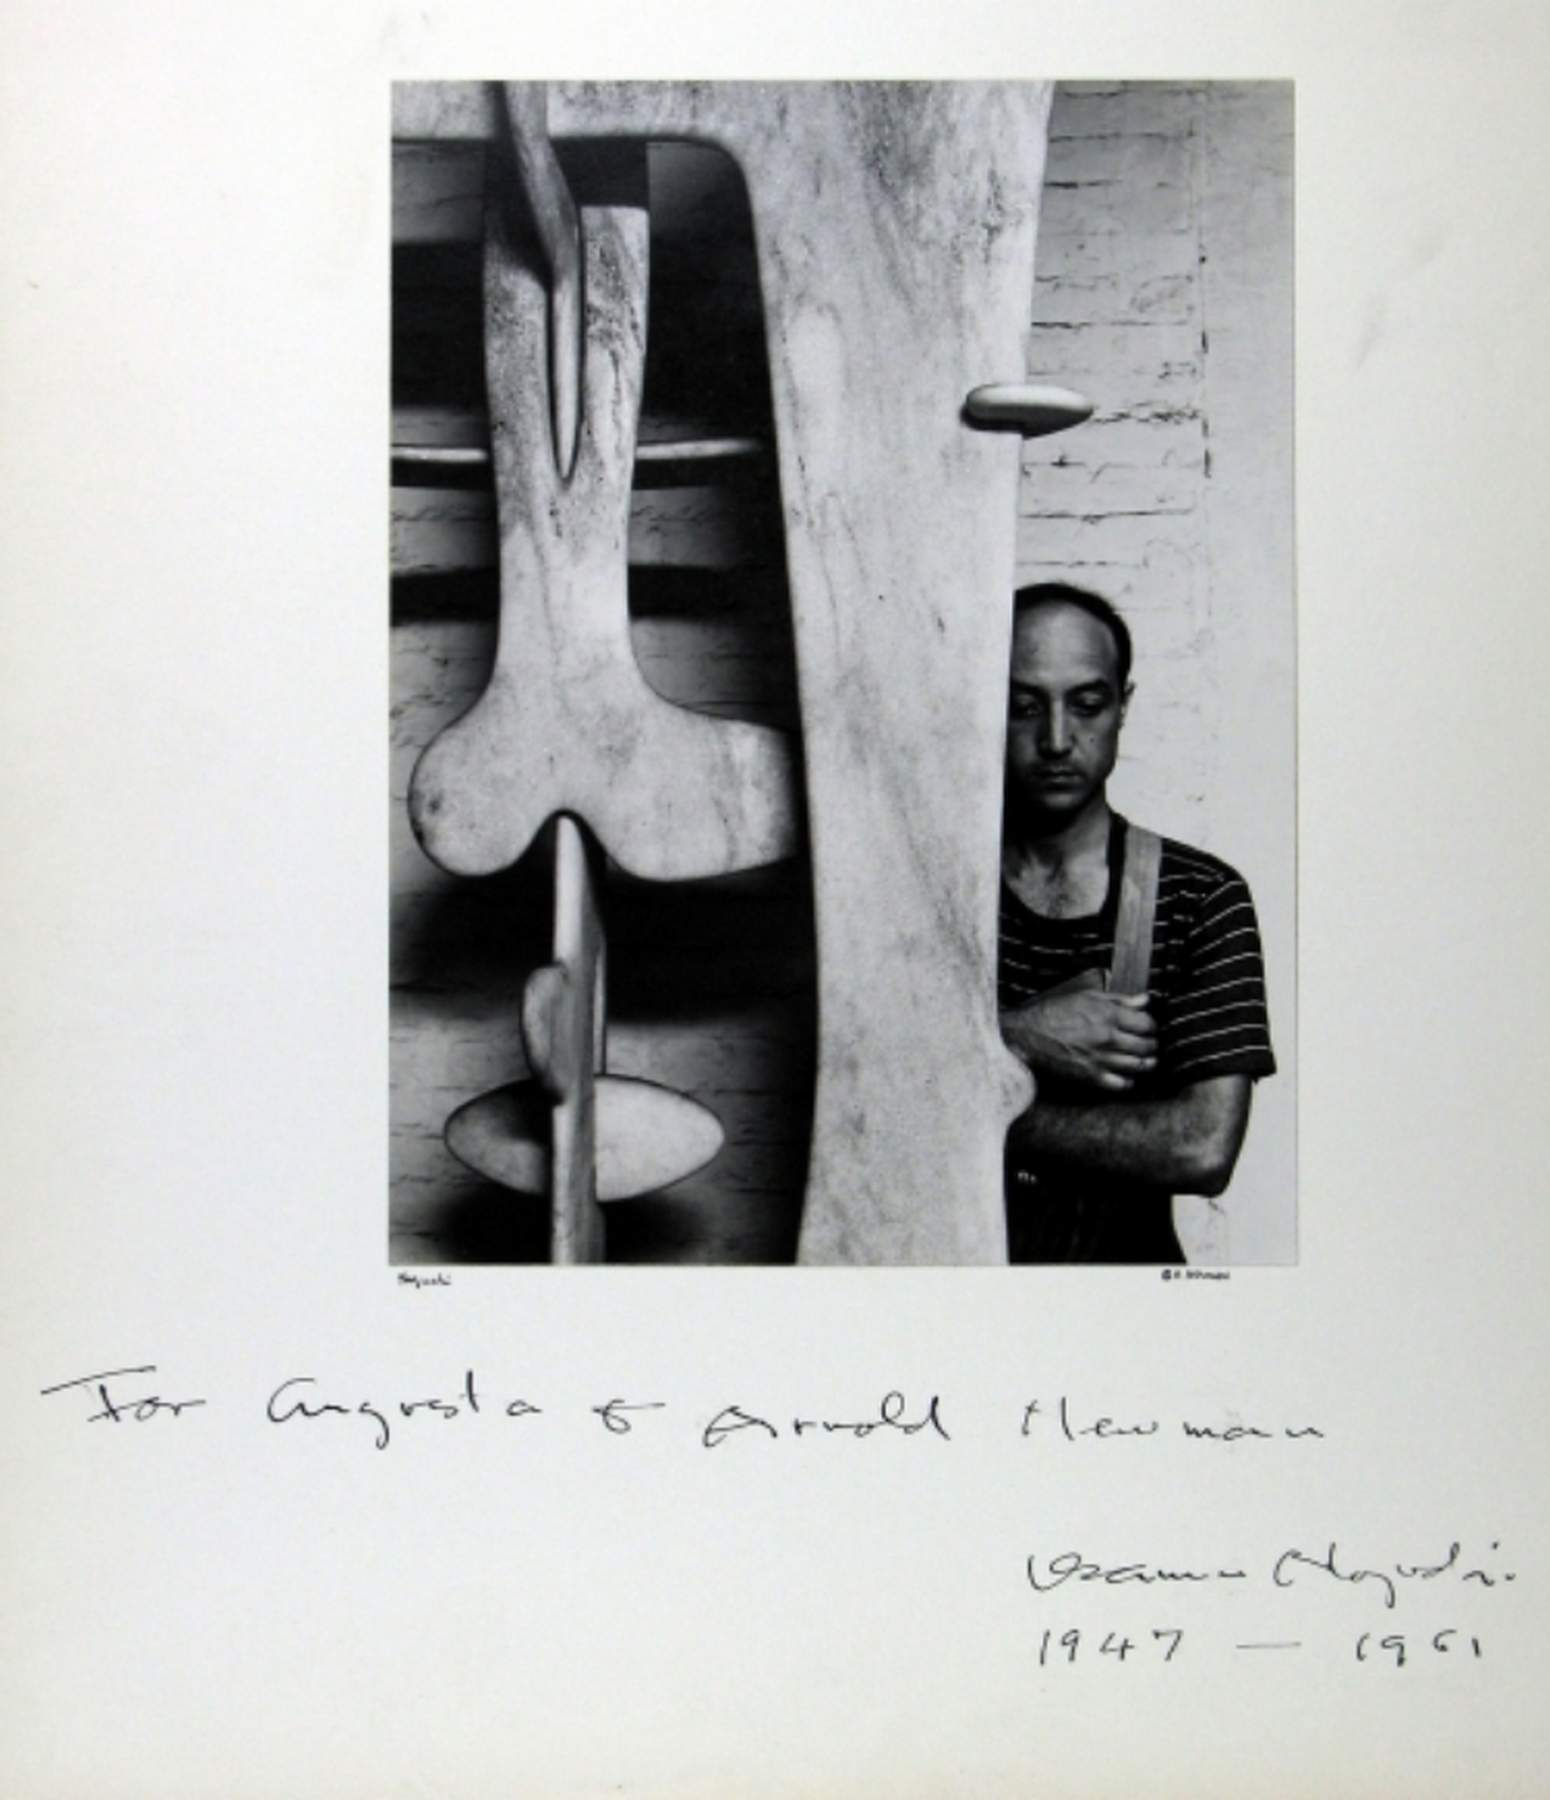 Noguchi
© A. Newman
For Augusta & Arnold Newman
Isamu Noguchi.
1947 — 1961